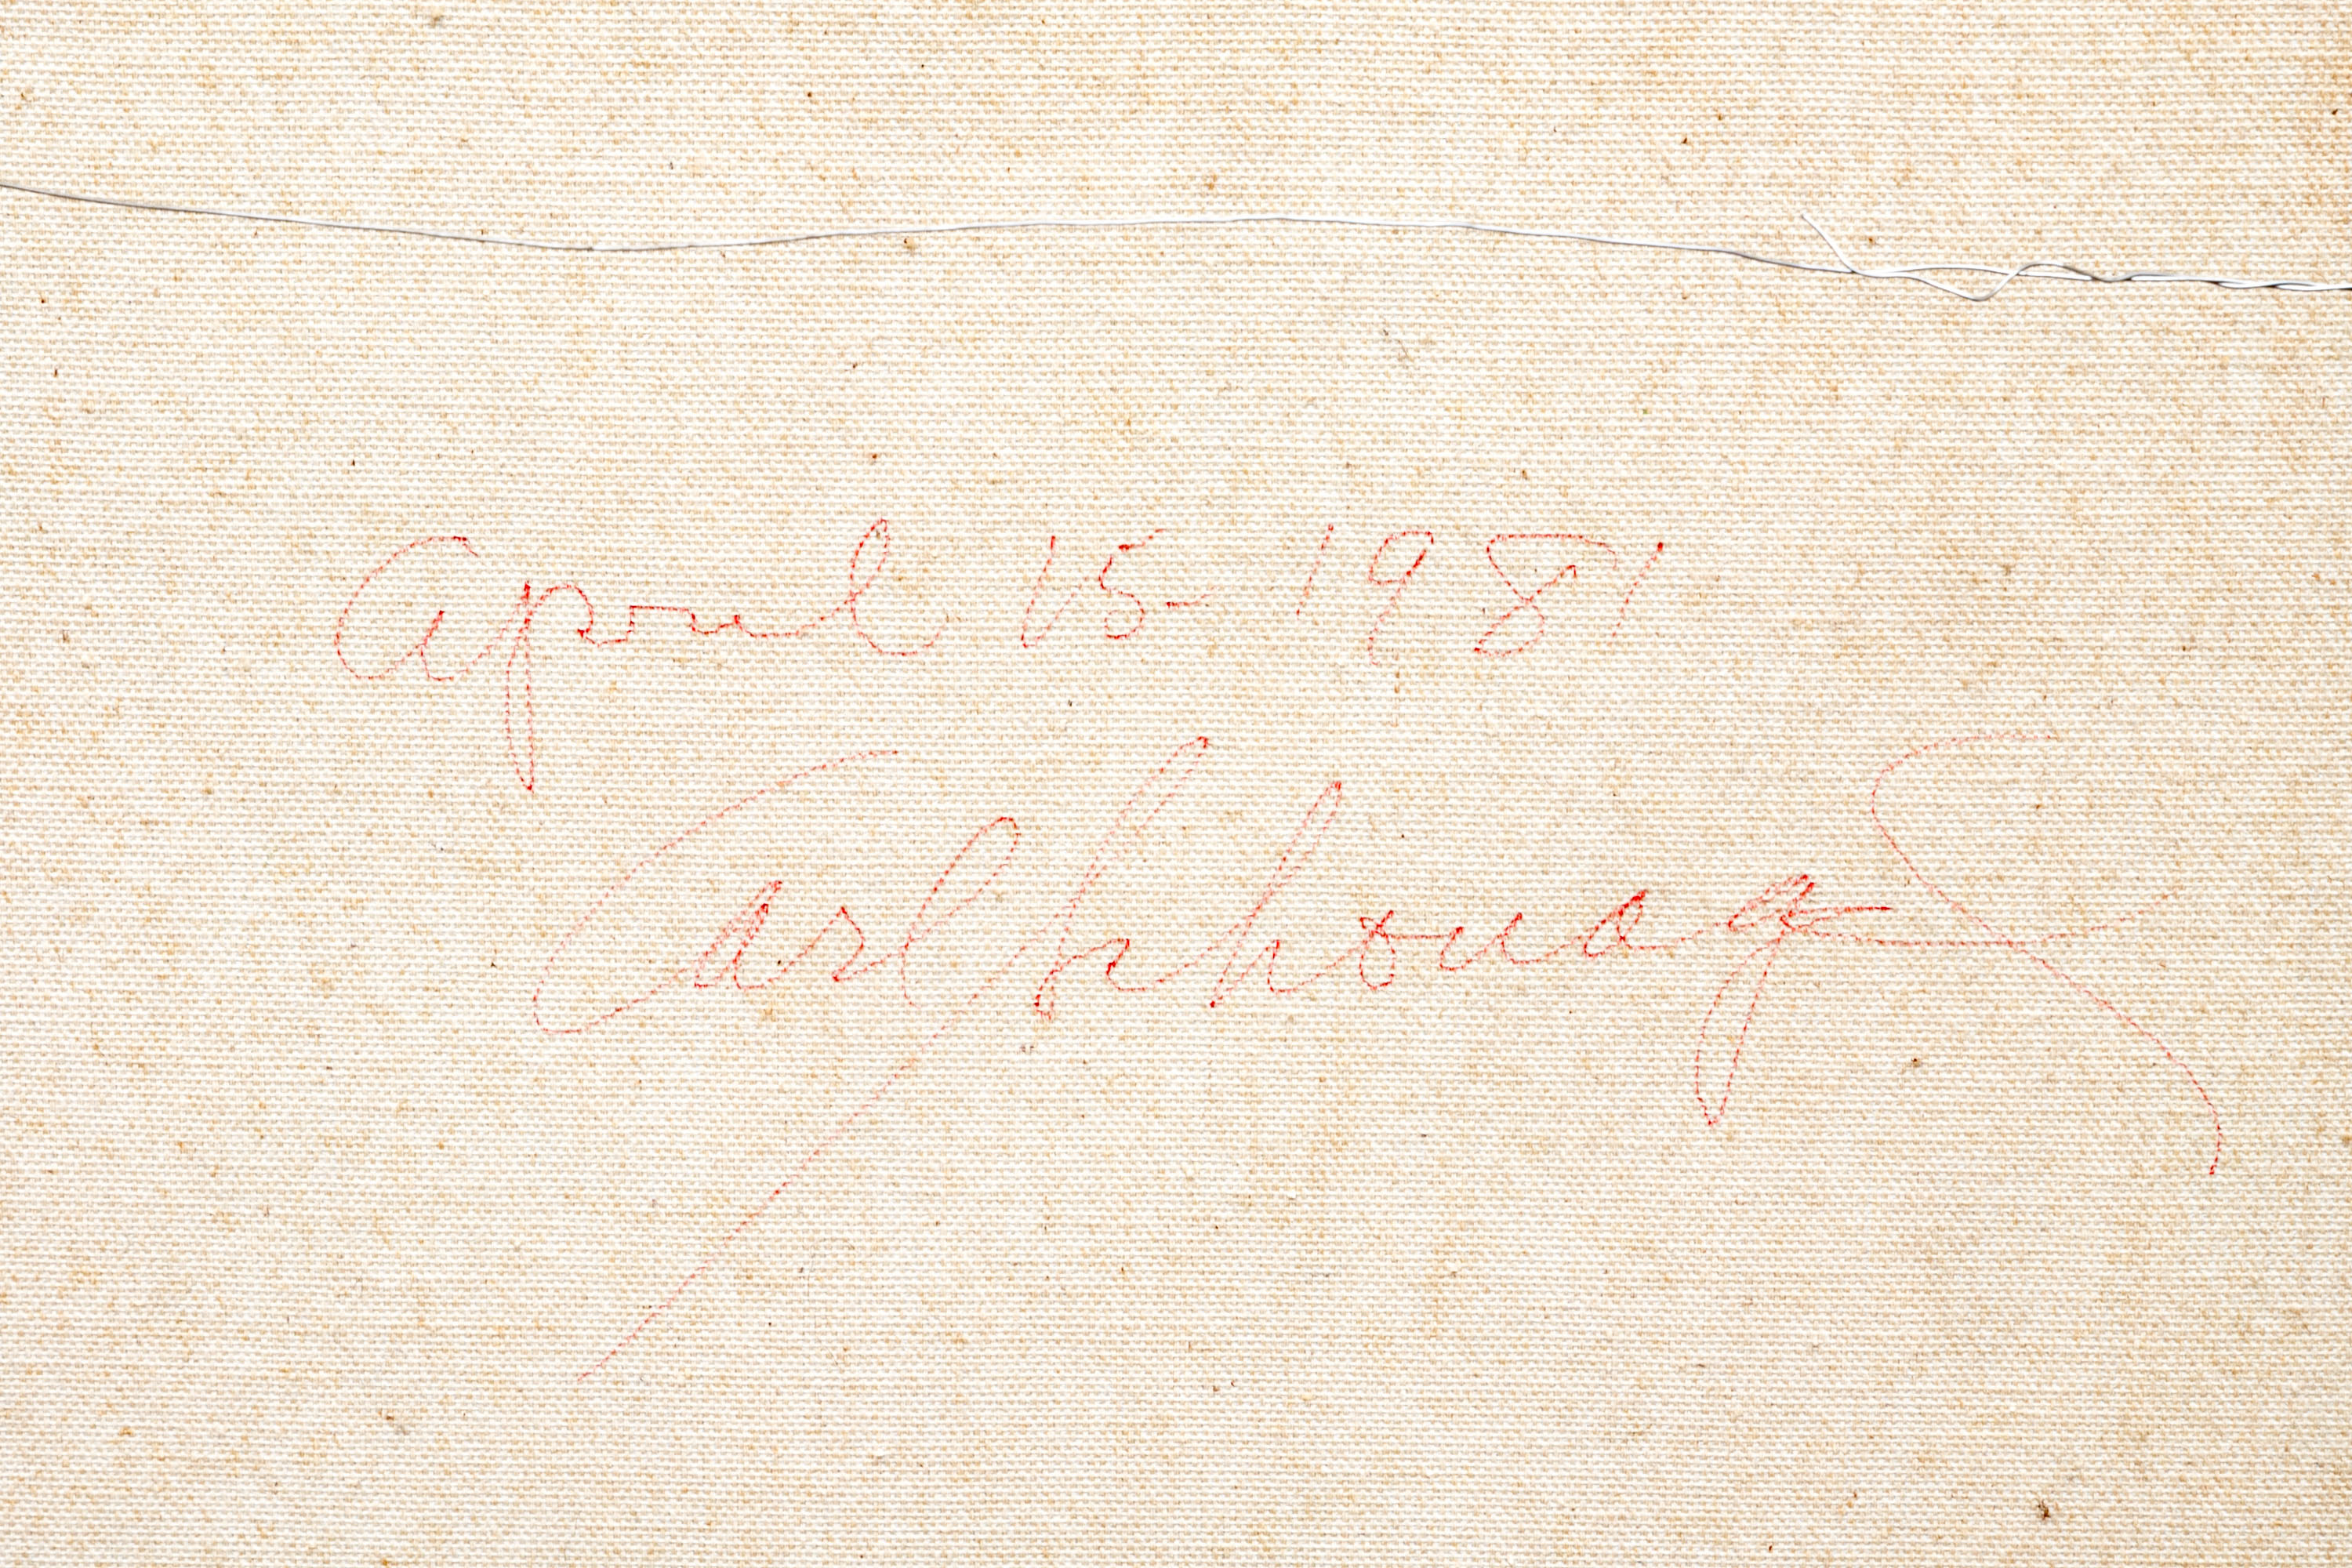 April 15-1981
Carl